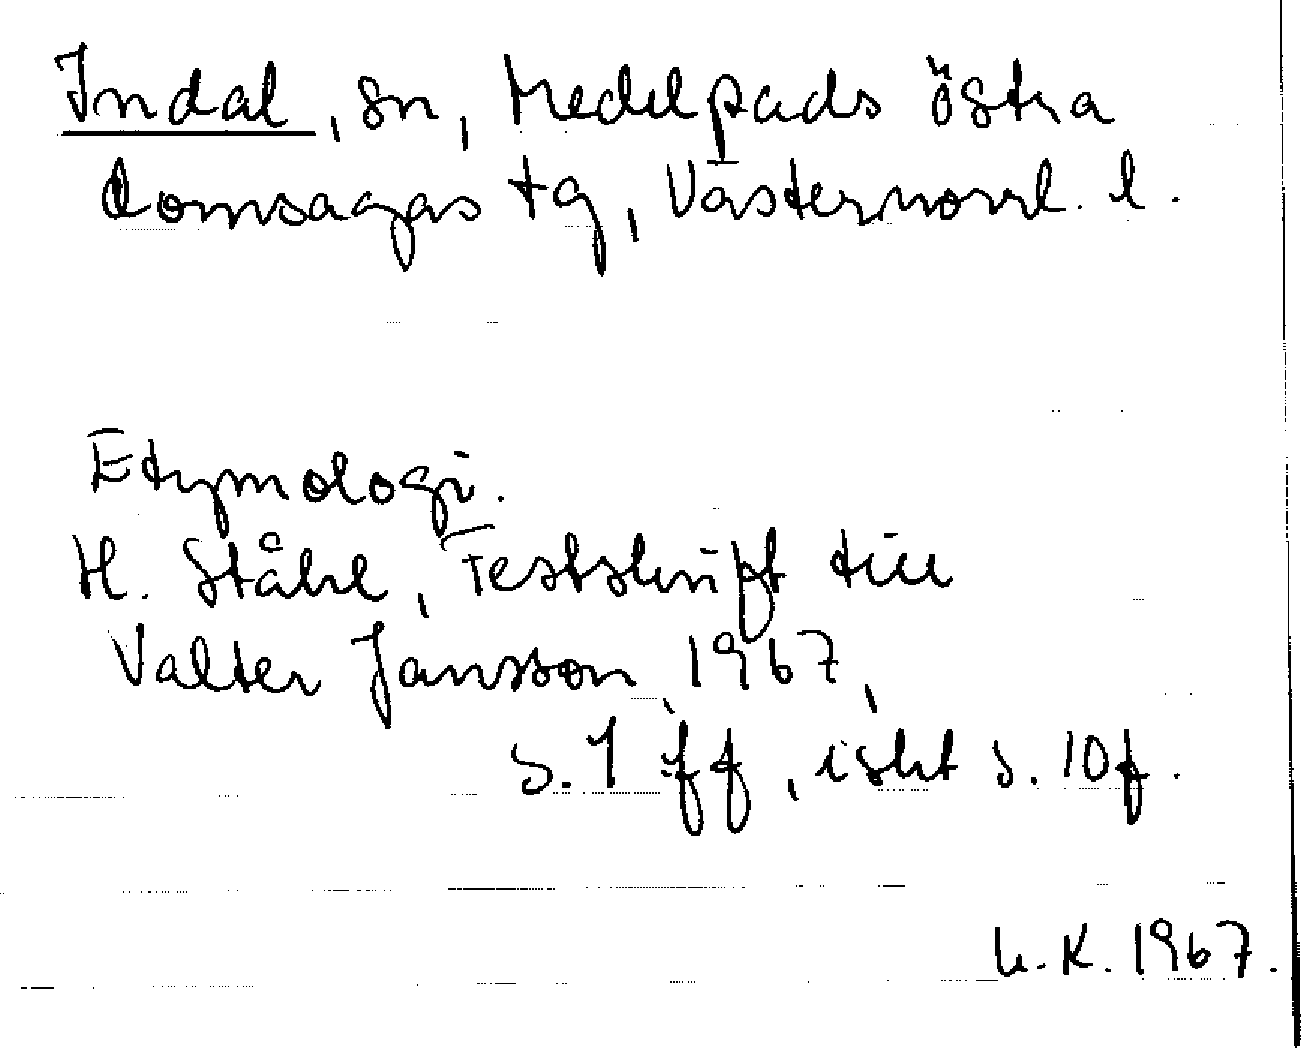 Indal, sn, Medelpads östra
domsagas tg, Västernorrl. l.
Etymologi.
H. Ståhl, Festskrift till
Valter Jansson, 1967,
s. 1 ff, isht s. 10f.
L.K. 1967.